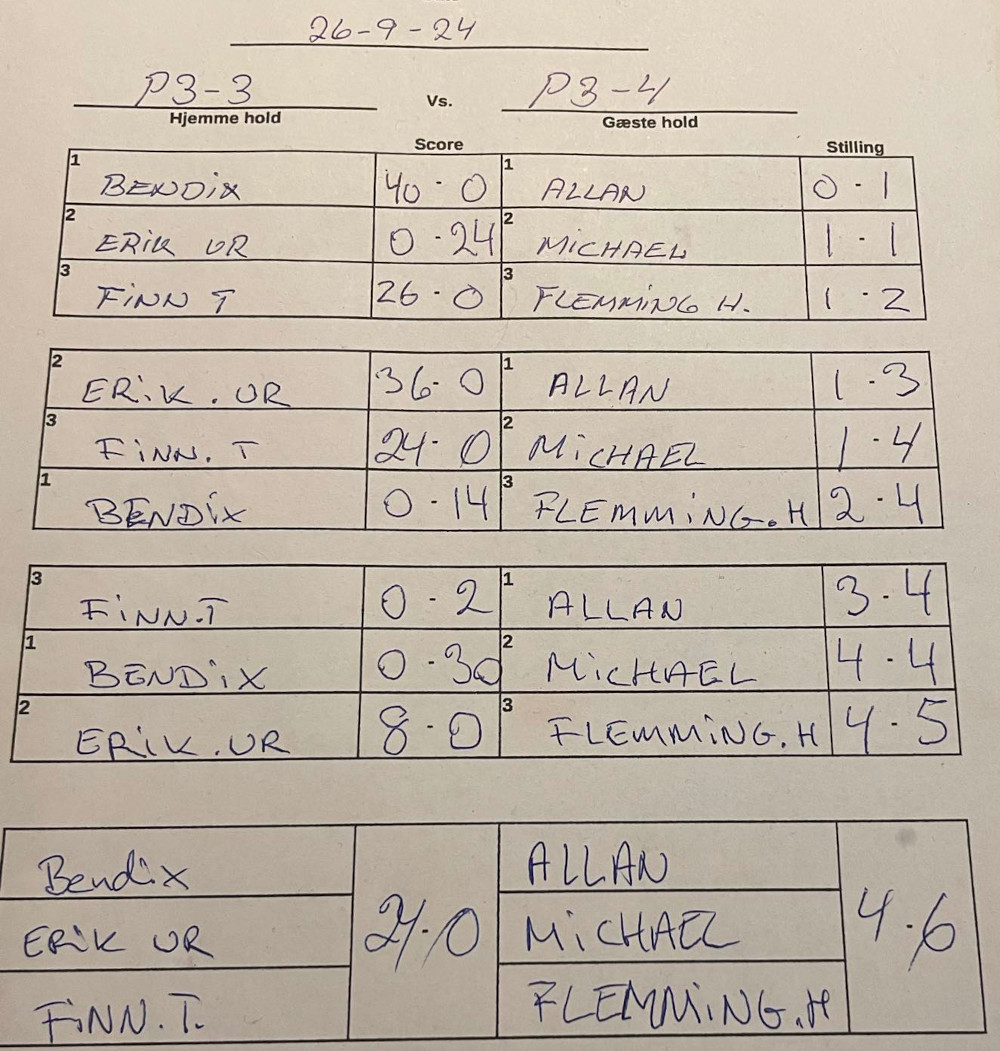 26-9-24
P3-3 Vs. P3-4
Hjemme hold Gæste hold
Score Stilling
1 BENDIX 40-0 1 ALLAN 0-1
2 ERIK UR 0-24 2 MICHAEL 1-1
3 FINN T 26-0 3 FLEMMING H. 1-2
2 ERIK. UR 36-0 1 ALLAN 1-3
3 FINN. T 24-0 2 MICHAEL 1-4
1 BENDIX 0-14 3 FLEMMING.H 2-4
3 FINN.T 0-2 1 ALLAN 3-4
1 BENDIX 0-30 2 MICHAEL 4-4
2 ERIK.UR 8-0 3 FLEMMING.H 4-5
Bendix ALLAN
ERIK UR MICHAEL 4-6
FINN.T. FLEMMING.H